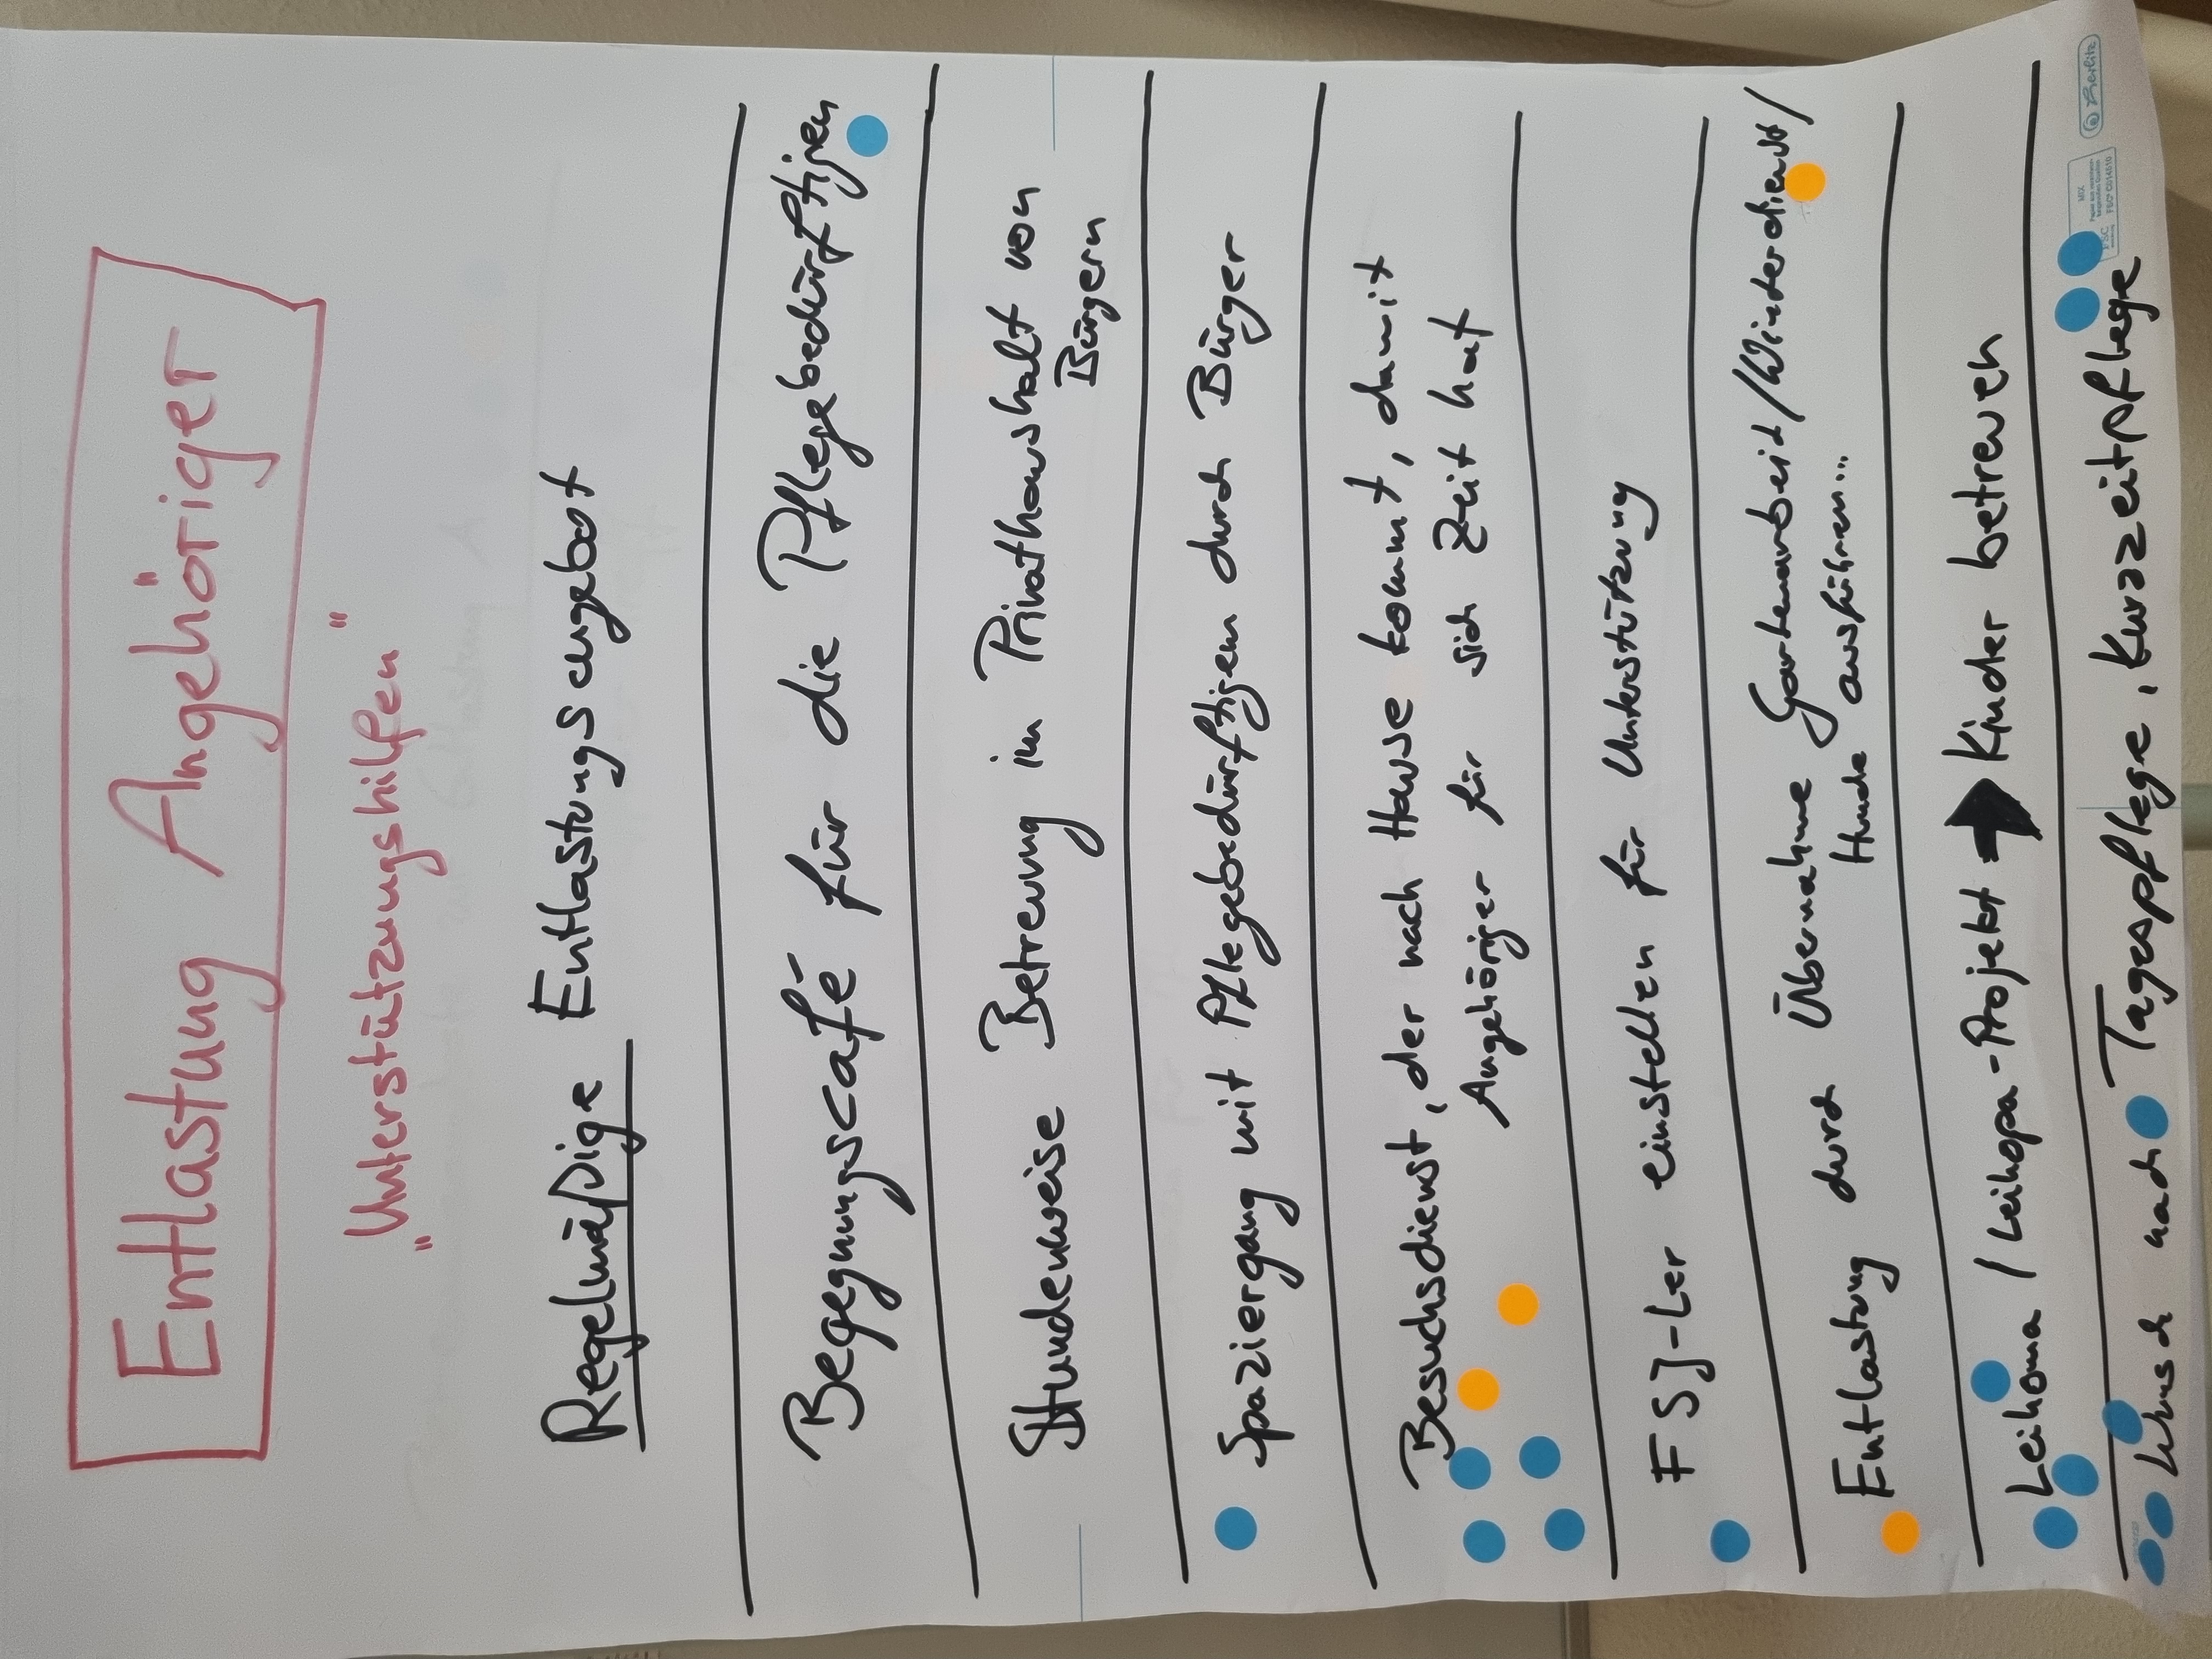 Entlastung Angehöriger
"Unterstützungshilfen"
Regelmäßige Entlastungsangebot
Begegnungscafé für die Pflegebedürftigen
Stundenweise Betreuung im Privathaushalt von
Bürgern
Spaziergang mit Pflegebedürftigen durch Bürger
Besuchsdienst, der nach Hause kommt, damit
Angehöriger für sich Zeit hat
FSJ-Ler einstellen für Unterstützung
Entlastung durch Übernahme Gartenarbeit/Winterdienst/
Hunde ausführen...
Leihoma / Leihopa-Projekt → Kinder betreuen
Wunsch nach Tagespflege, Kurzzeitpflege
Berlitz
FSC
MIX